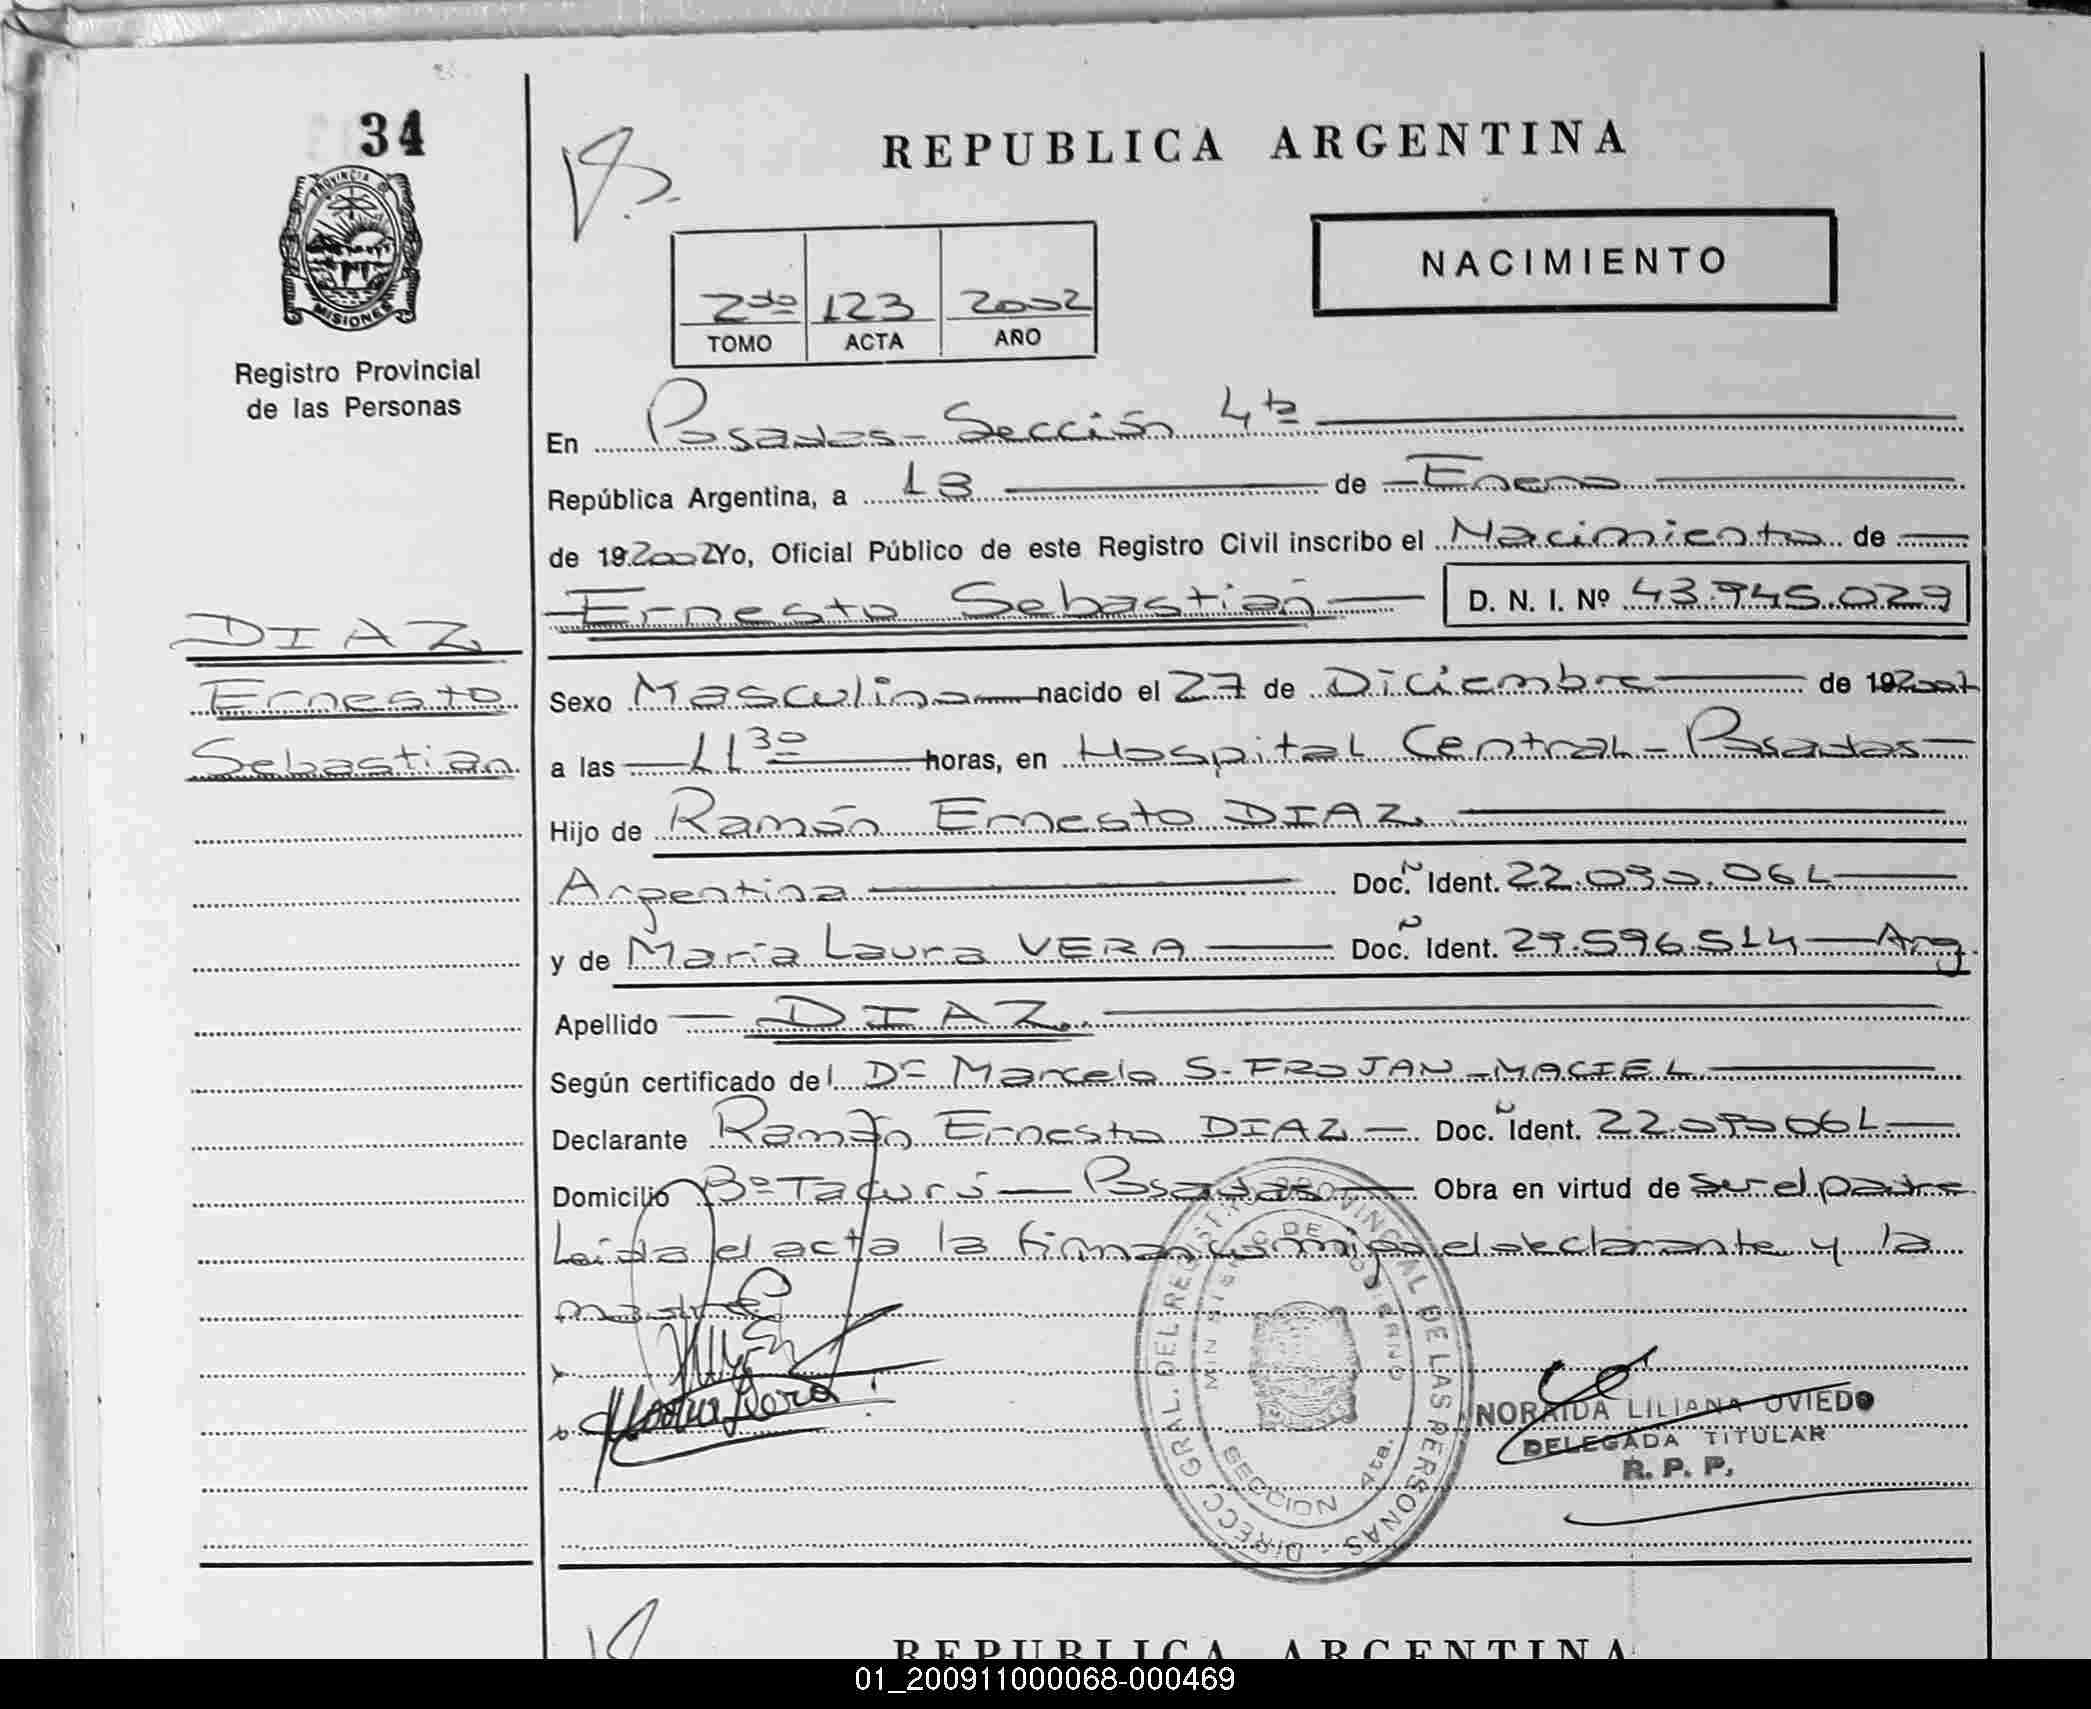 34
PROVINCIA DE
MISIONES
Registro Provincial
de las Personas
REPUBLICA ARGENTINA
NACIMIENTO
2do 123 2002
TOMO ACTA AÑO
En Posadas - Sección 4ta
República Argentina, a 18 de Enero
de 19 2002 Yo, Oficial Público de este Registro Civil inscribo el Nacimiento de
Ernesto Sebastián D. N. I. Nº 43.945.029
DIAZ
Ernesto
Sebastián
Sexo Masculino nacido el 27 de Diciembre de 19 2001
a las 11 30 horas, en Hospital Central - Posadas
Hijo de Ramón Ernesto DIAZ
Argentina Doc. Ident. 22.090.061
y de María Laura VERA Doc. Ident. 29.596.514 Arg.
Apellido DIAZ
Según certificado del Dr Marcelo S. FROJAN - MACIEL
Declarante Ramón Ernesto DIAZ Doc. Ident. 22.090061
Domicilio Bº Tacurú - Posadas Obra en virtud de ser el padre
Leída el acta la firman conmigo el declarante y la
madre
DIRECC. GRAL. DEL REGISTRO PROVINCIAL DE LAS PERSONAS
MINISTERIO DE GOBIERNO
SECCION 4ta.
NORAIDA LILIANA OVIEDO
DELEGADA TITULAR
R. P. P.
REPUBLICA ARGENTINA
01_200911000068-000469